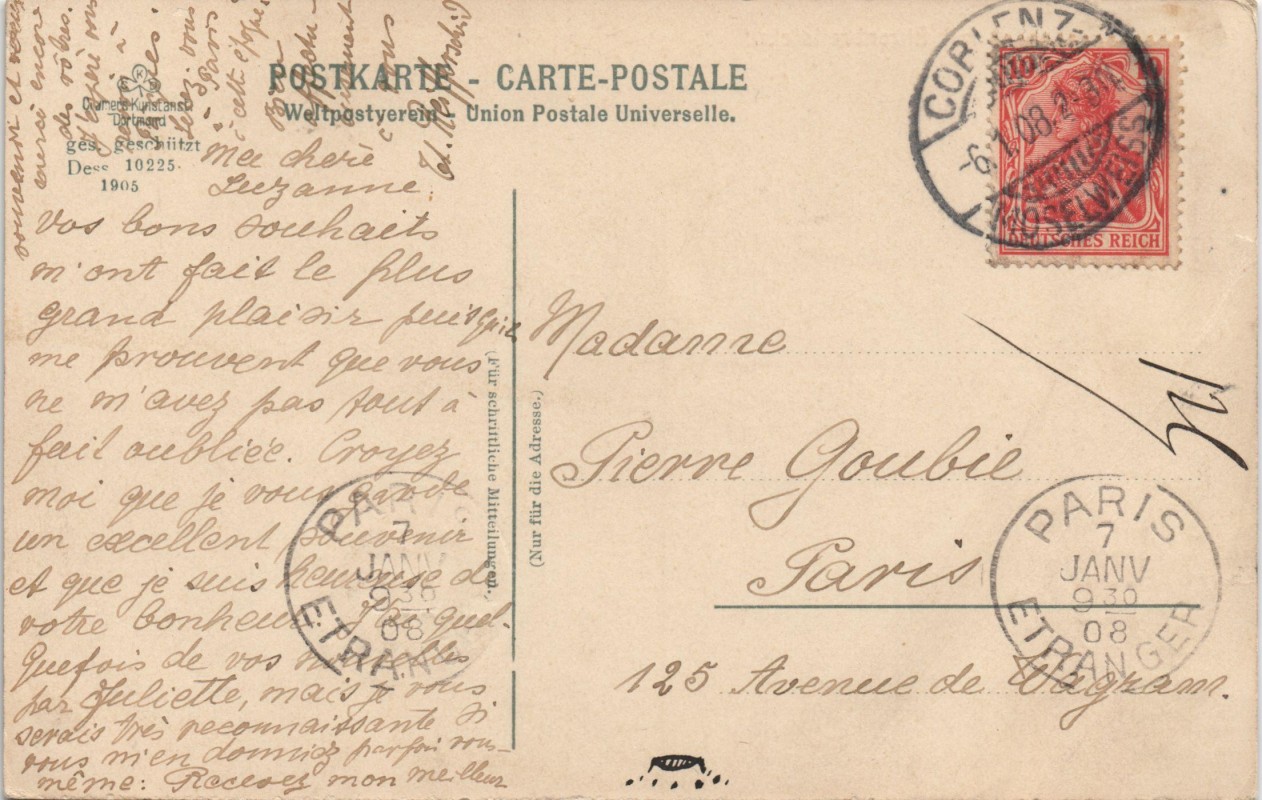 POSTKARTE - CARTE-POSTALE
Weltpostverein - Union Postale Universelle.
Cramers Kunstanst.
Dortmund
ges. geschützt
Dess 10225.
1905
Ma chère
Suzanne
vos bons souhaits
m'ont fait le plus
grand plaisir puisqu'il
me prouvent que vous
ne m'avez pas tout à
fait oubliée. Croyez
moi que je vous garde
un excellent souvenir
et que je suis heureuse de
votre bonheur. J'ai quel-
quefois de vos nouvelles
par Juliette, mais je vous
serais très reconnaissante si
vous m'en donniez parfois vous-
même: Recevez mon meilleur
souvenir et
encore
des vôtres.
à
vous
Paris
à cette
à vous
(Für schriftliche Mitteilungen.)
(Nur für die Adresse.)
Madame
Pierre Goubie
Paris
125 Avenue de Wagram.
10 10
DEUTSCHES REICH
COBLENZ-
-6.1.08.
MOSELWEISS
PARIS
7
JANV
9 30
08
ETRANGER
PARIS
7
JANV
9 30
08
ETRANGER